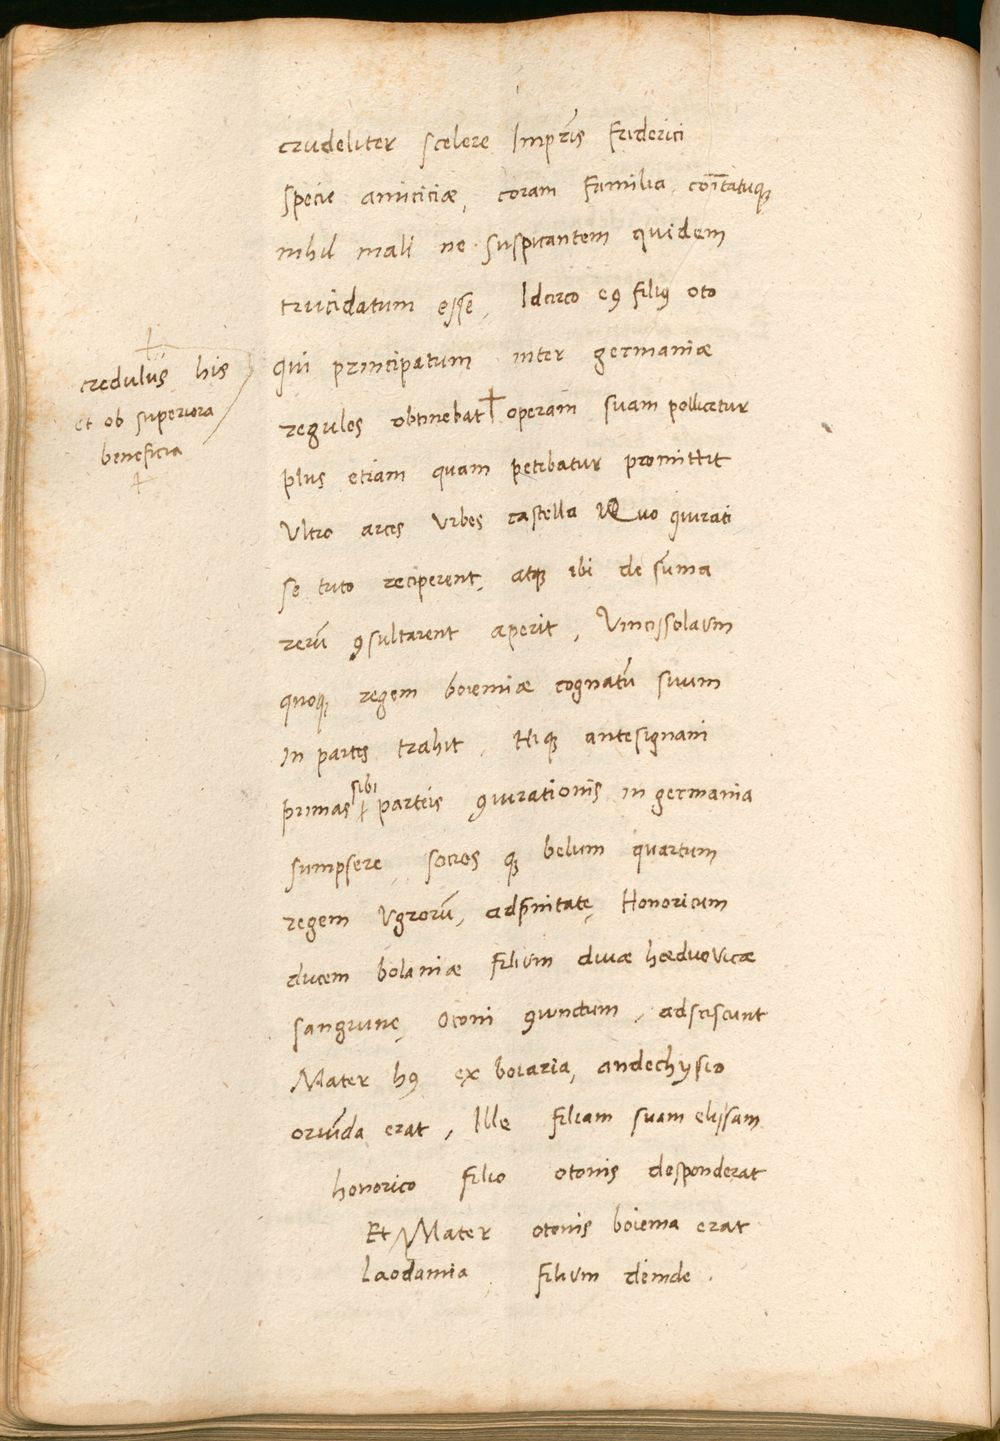 crudeliter scelere Impr̄is Friderici
specie amiciciæ, coram Familia, com̄itatuqꝫ
nihil mali ne suspicantem quidem
trucidatum esse, Idcirco eꝰ filiꝰ oto
qui principatum inter germaniæ
regulos obtinebat † operam suam pollicetur
credulus his
et ob superiora
beneficia
plus etiam quam petebatur promittit
Ultro arces Urbes castella Quo ꝯiurati
se tuto reciperent, atqꝫ ibi de sum̄a
rerū ꝯsultarent aperit, Vincissolaum
quoqꝫ regem boiemiæ cognatū suum
In partes trahit, Hiqꝫ antesignani
primas sibi parteis ꝯiurationis in germania
sumpsere, socios qꝫ belum quartum
regem Ugrorū, adfinitate, Honoricum
ducem bolaniæ filium diuæ hæduovicæ
sanguine, Otoni ꝯiunctum, adsciscunt
Mater hꝰ ex boiaria, andechysio
oriūda erat, Ille filiam suam elissam
honorico filio otonis desponderat
Et Mater otonis boiema erat
Laodamia filium deinde.